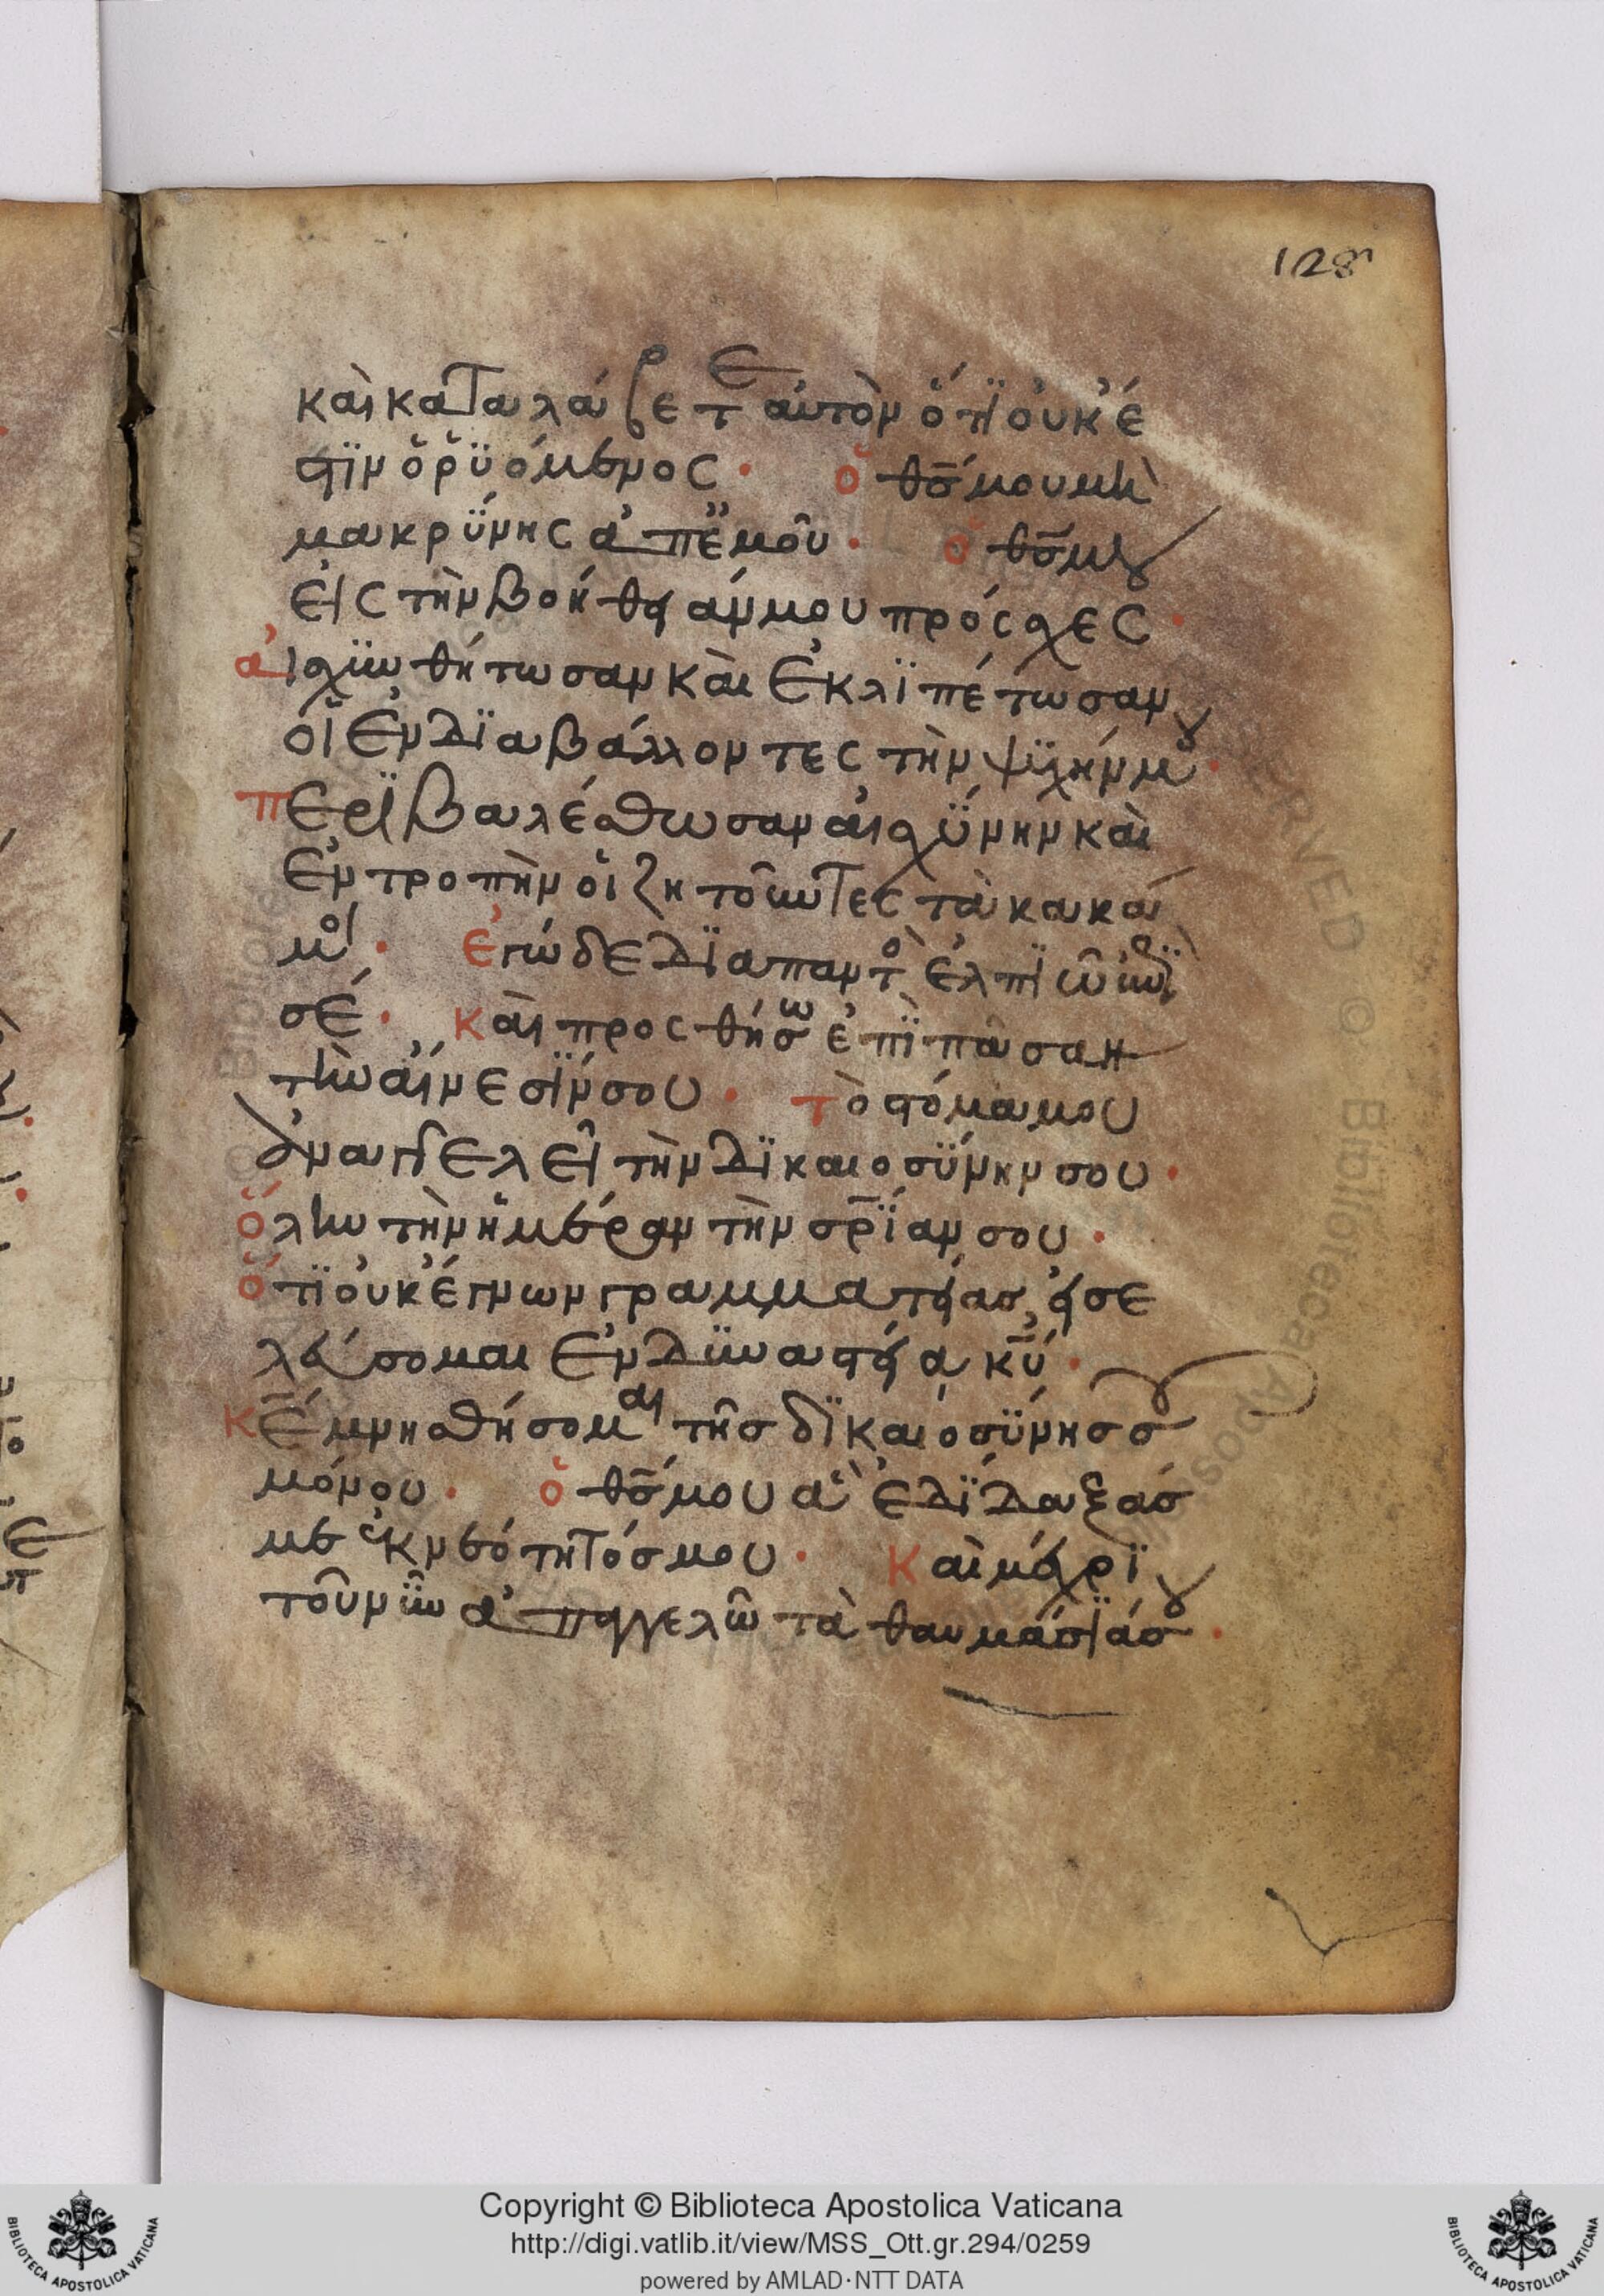 128
καὶ καταλάβετε αὐτὸν ὅτϊ οὐκ ἔ
στϊν ὁ ῥϋόμενος· ὁ θ̅ς̅ μου μὴ
μακρΰνης ἀπ ἐμοῦ· ὁ θ̅ς̅ μου
εἰς τὴν βοήθειάν μου πρόσχες·
αἰσχϋνθήτωσαν καὶ ἐκλϊπέτωσαν
οἱ ἐνδϊαβάλλοντες τὴν ψϋχήν μου·
περϊβαλέσθωσαν αἰσχΰνην καὶ
ἐντροπὴν οἱ ζητοῦντες τὰ κακά
μοι· ἐγὼ δε δϊαπαντὸς ἐλπϊῶ ἐπϊ
σέ· καὶ προσθήσω ἐπϊ πᾶσαν
τὴν αἴνεσϊν σου· τὸ στόμα μου
ἀναγγελεῖ τὴν δϊκαιοσΰνην σου·
ὅλην τὴν ἡμέραν τὴν σ̅ρ̅ΐαν σου·
ὅτϊ οὐκ ἔγνων γραμματείας εἰσε
λεύσομαι ἐν δϋναστεία κ̅υ̅·
κ̅ε̅ μνησθήσομαι τῆς δϊκαιοσΰνης σου
μόνου· ὁ θ̅ς̅ μου ἃ ἐδΐδαξάς
με ἐκ νεότητός μου· καὶ μέχρϊ
τοῦ νῦν ἀπαγγελῶ τὰ θαυμάσϊά σου·
Copyright © Biblioteca Apostolica Vaticana
http://digi.vatlib.it/view/MSS_Ott.gr.294/0259
powered by AMLAD·NTT DATA
BIBLIOTECA APOSTOLICA VATICANA
BIBLIOTECA APOSTOLICA VATICANA